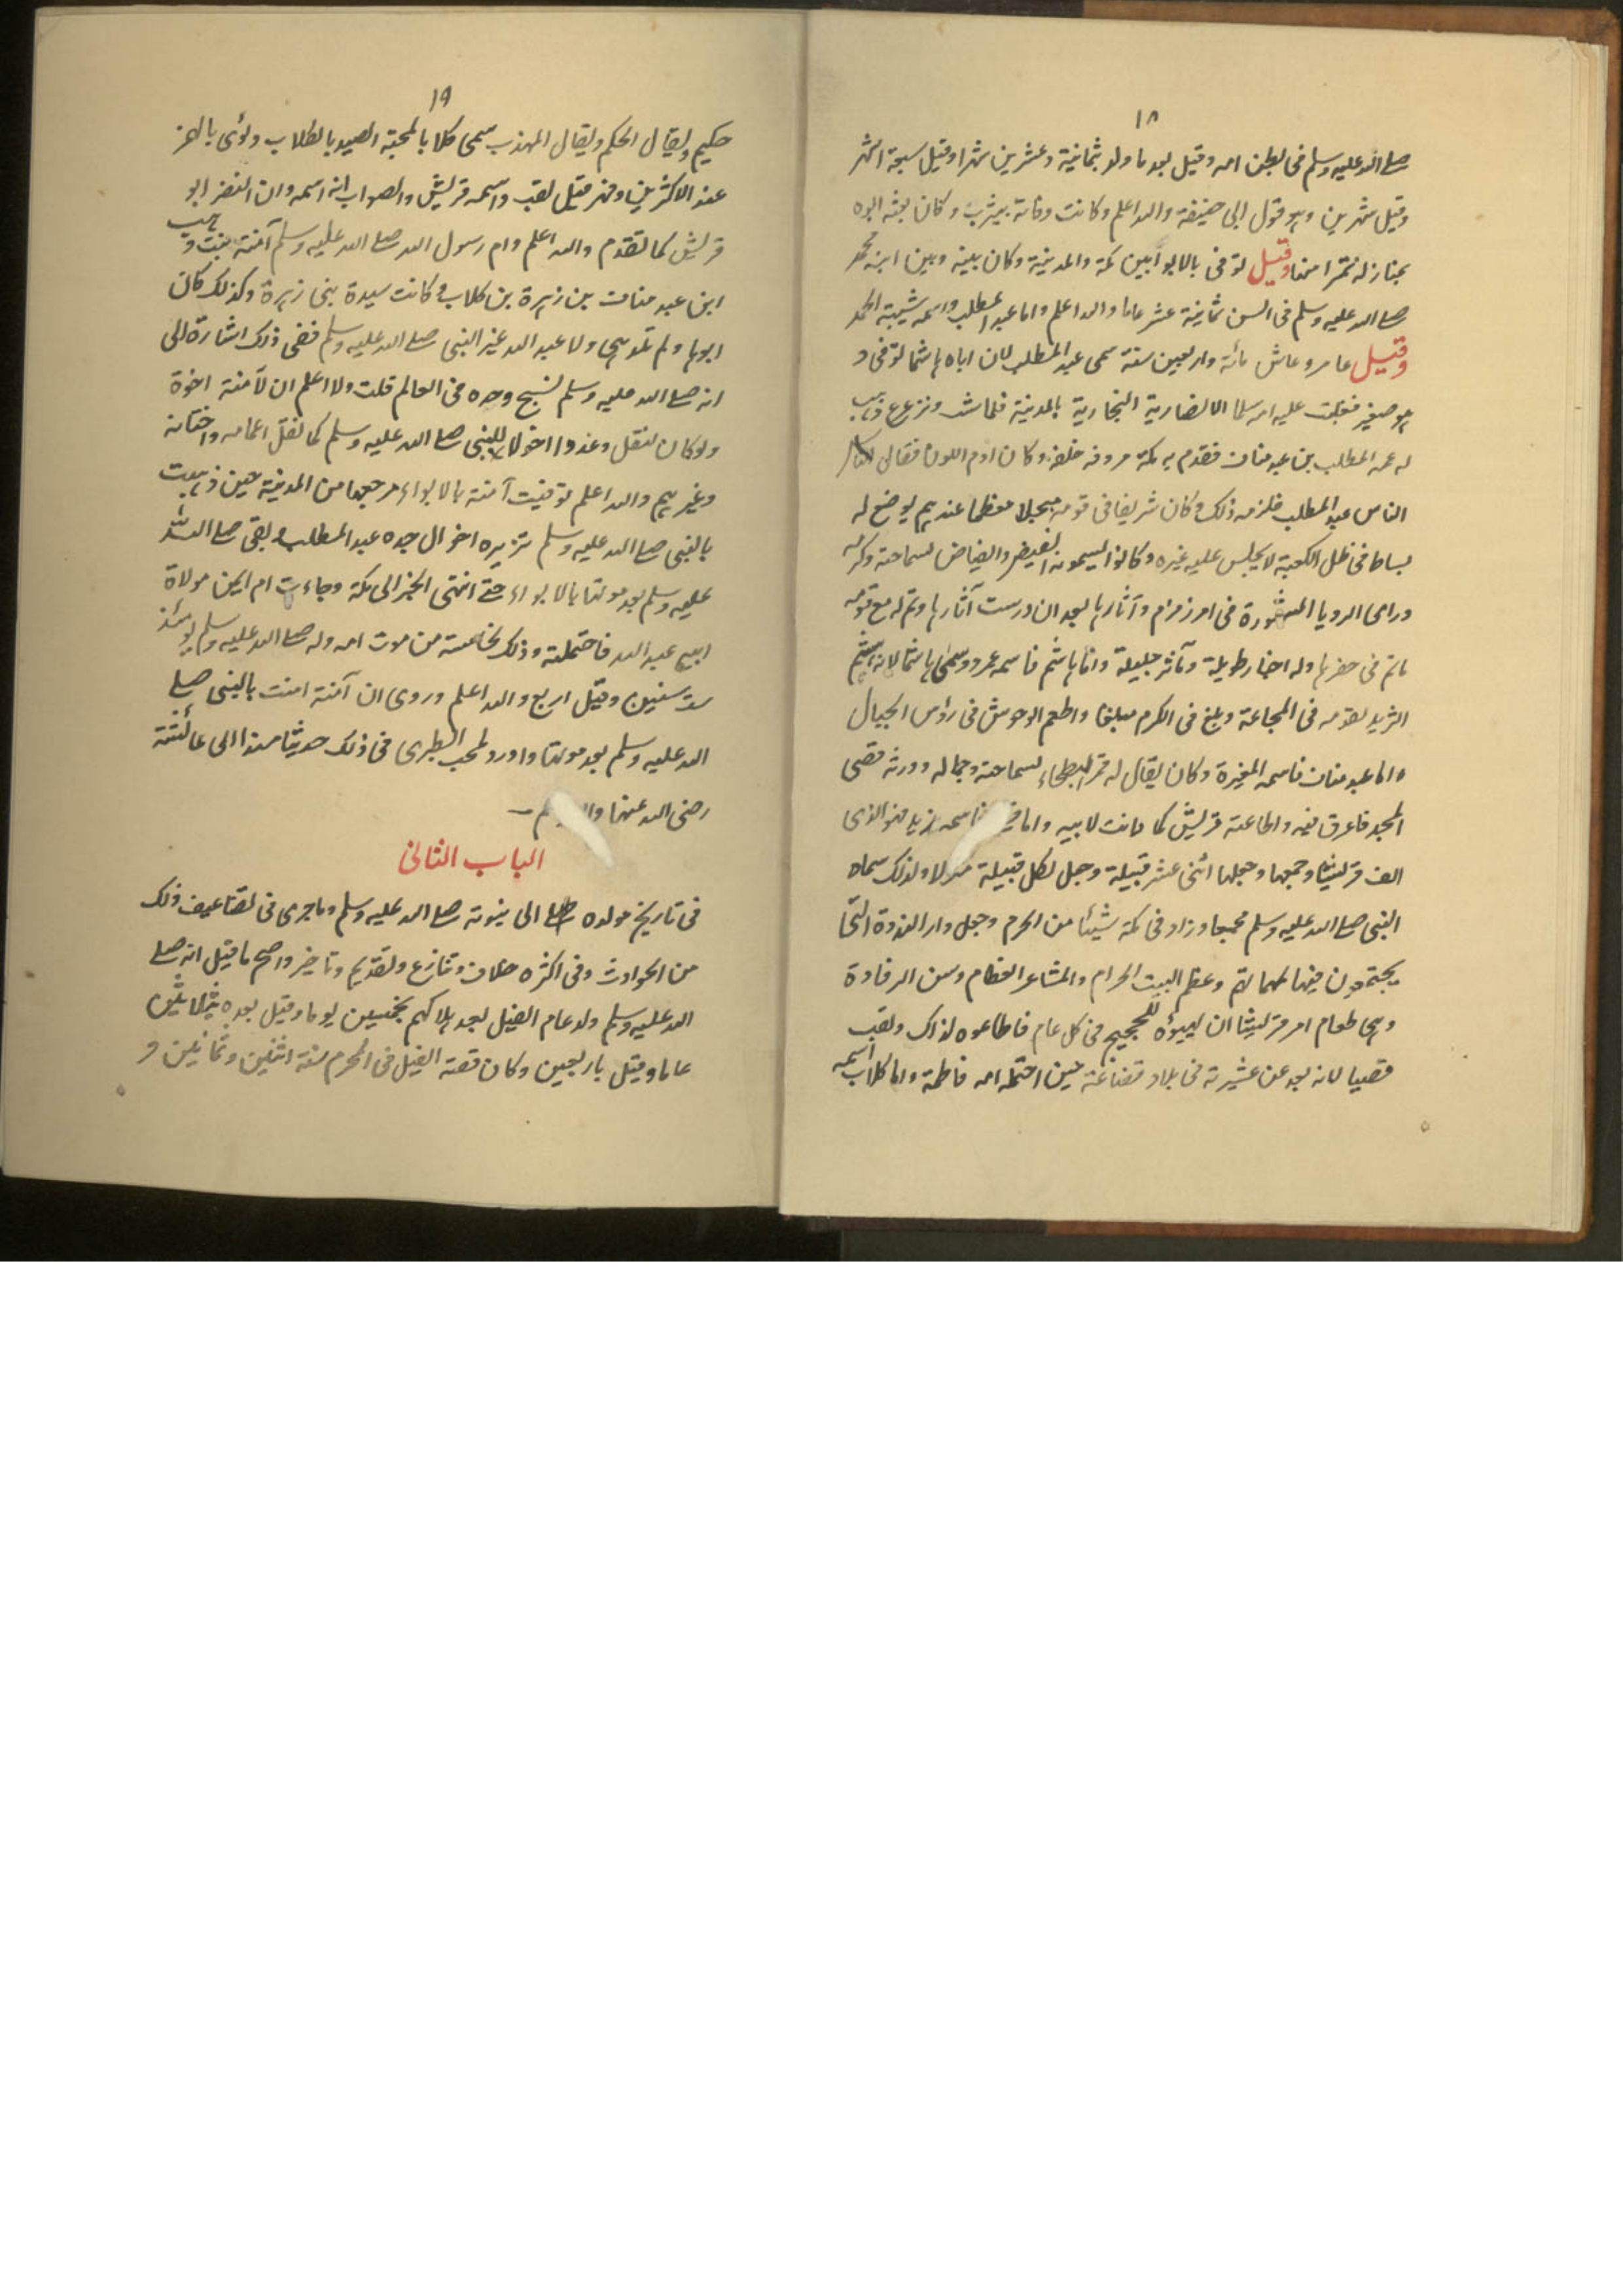 ١٨
صلى الله عليه وسلم فى بطن امه وقيل بعد ما ولد بثمانية وعشرين شهرا وقيل سبعة اشهر
وقيل شهرين وهو قول ابى حنيفة والله اعلم وكانت وفاته بيثرب وكان بعثه ابوه
يمتار له تمرا منها وقيل توفى بالابوا بين مكة والمدينة وكان بينه وبين ابنه محمد
صلى الله عليه وسلم فى السن ثمانية عشر عاما والله اعلم واما عبد المطلب واسمه شيبة الحمد
وقيل عامر وعاش مائة واربعين سنة سمى عبد المطلب لان اباه هاشما توفى و
هو صغير فغلبت عليه امه سلما الانصارية النجارية بالمدينة فلما شب وترعرع ذهب
له عمه المطلب بن عبد مناف فقدم به مكة مردفه خلفه وكان ادم اللون فقال
الناس عبد المطلب فلزمه ذلك وكان شريفا فى قومه مبجلا معظما عندهم يوضع له
بساط فى ظل الكعبة لا يجلس عليه غيره وكانوا يسمونه الفيض والفياض لسماحته وكرمه
وراى الرويا المشهورة فى امر زمزم وآثارها بعد ان درست آثارها وتم له مع قومه
ما تم فى حفرها وله اخبار طويلة ومآثر جليلة واما هاشم فاسمه عمرو وسمى هاشما لانه هشم
الثريد لقومه فى المجاعة وبلغ فى الكرم مبلغا واطعم الوحوش فى رؤس الجبال
واما عبد مناف فاسمه المغيرة وكان يقال له قمر البطحاء لسماحته وجماله وورثه قصى
المجد فاعرق فيه واطاعته قريش كما دانت لابيه واما فاسمه زيد فهو الذى
الف قريشا وجمعها وجعلها اثنى عشر قبيلة وجعل لكل قبيلة منزلا ولذلك سماه
النبى صلى الله عليه وسلم مجمعا وزاد فى مكة شيئا من الحرم وجعل دار الندوة التى
يجتمعون فيها لمهماتهم وعظم البيت الحرام والمشاعر العظام وسن الرفادة
وهى طعام امر قريشا ان يهيئوه للحجيج فى كل عام فاطاعوه لذاك ولقب
قصيا لانه بعد عن عشيرته فى بلاد قضاعة حين احتمله امه فاطمة واما كلاب اسمه
١٩
حكيم ويقال الحكم ويقال المهذب سمى كلابا لمحبته الصيد بالكلاب ولؤى بالهمز
عند الاكثرين وفهر قيل لقب واسمه قريش والصواب انه اسمه وان النضر ابو
قريش كما تقدم والله اعلم وام رسول الله صلى الله عليه وسلم آمنة بنت وهب
ابن عبد مناف بن زهرة بن كلاب وكانت سيدة بنى زهرة وكذلك كان
ابوها ولم تلد هى ولا عبد الله غير النبى صلى الله عليه وسلم ففى ذلك اشارة الى
انه صلى الله عليه وسلم نسيج وحده فى العالم قلت ولا اعلم ان لآمنة اخوة
ولو كان لنقل وعدوا اخوالا للنبى صلى الله عليه وسلم كما نقل اعمامه واختانه
وغيرهم والله اعلم توفيت آمنة بالابواء مرجعها من المدينة حين ذهبت
بالنبى صلى الله عليه وسلم تزيره اخوال جده عبد المطلب وبقى صلى الله
عليه وسلم بعد موتها بالابواء حتى انتهى الخبر الى مكة وجاءت ام ايمن مولاة
ابيه عبد الله فاحتملته وذلك لخامسة من موت امه وله صلى الله عليه وسلم يومئذ
ست سنين وقيل اربع والله اعلم وروى ان آمنة امنت بالنبى صلى
الله عليه وسلم بعد موتها واورد لمحب الطبرى فى ذلك حديثا مسندا الى عائشة
رضى الله عنها
الباب الثانى
فى تاريخ مولده الى نبوته صلى الله عليه وسلم وما جرى فى تضاعيف ذلك
من الحوادث وفى اكثره خلاف وتنازع وتقديم وتاخير واصح ما قيل انه صلى
الله عليه وسلم ولد عام الفيل بعد هلاكهم بخمسين يوما وقيل بعده بثلاثين
عاما وقيل باربعين وكان قصة الفيل فى المحرم سنة اثنين وثمانين و